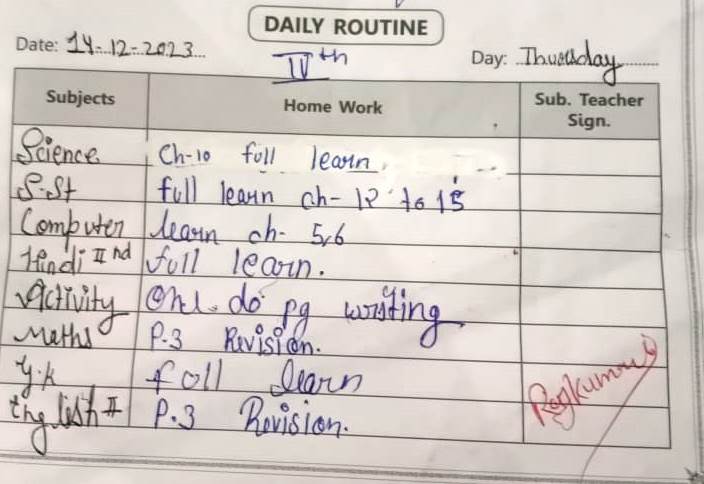 DAILY ROUTINE
Date: 14-12-2023
IVth
Day: Thursday
Subjects Home Work Sub. Teacher Sign.
Science Ch-10 full learn.
S.St full learn ch- 12 to 15
Computer learn ch- 5,6
Hindi IInd full learn.
Activity One do pg writing
Maths P.3 Revision.
G.K full learn
English II P.3 Revision.
Rajkumar